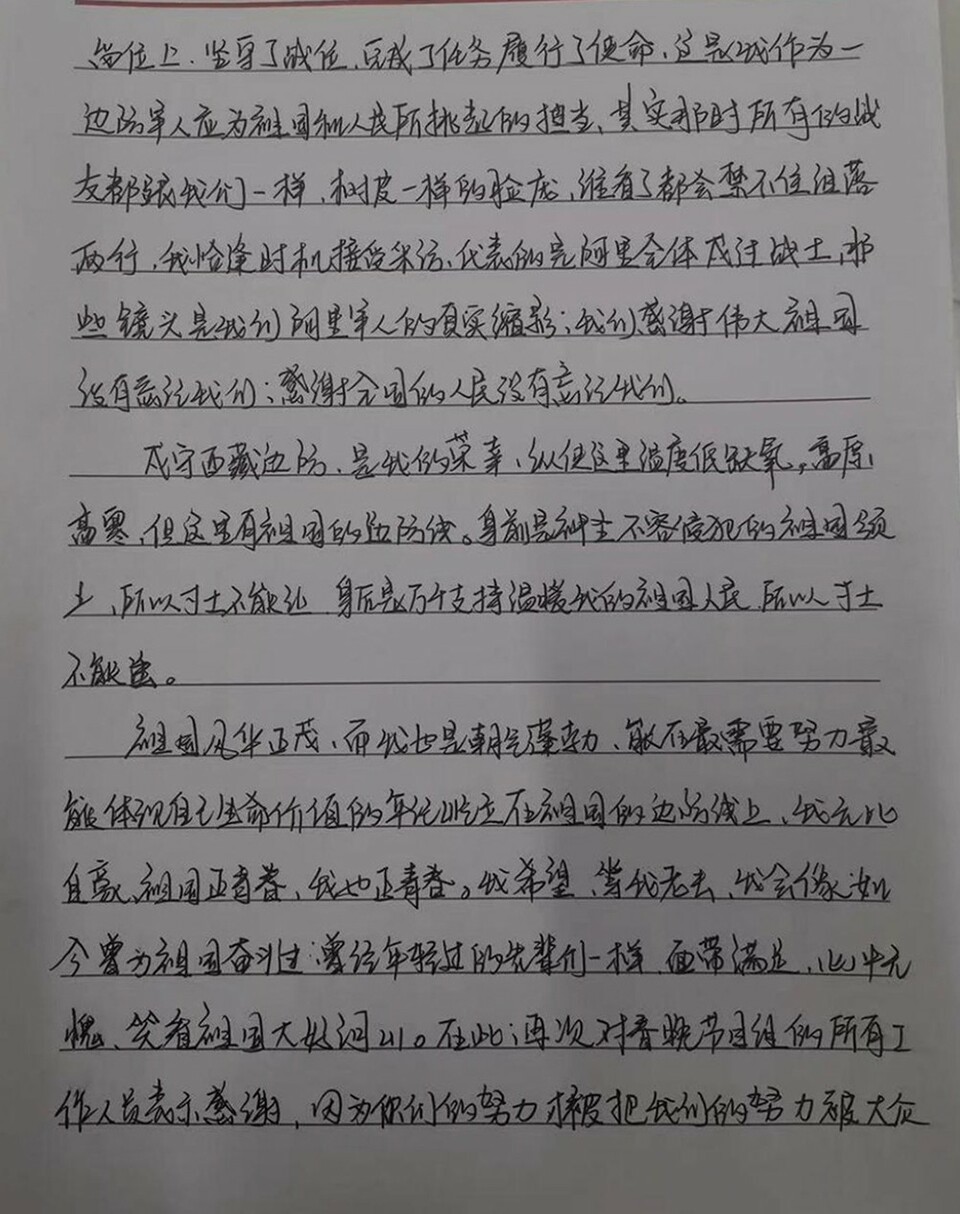 岗位上、坚守了战位、完成了任务履行了使命、这是我作为一
边防军人应为祖国和人民所挑起的担当、其实那时所有的战
友都跟我们一样、树皮一样的脸庞、谁看了都会禁不住泪落
两行、我恰逢时机接受采访、代表的是阿里全体戍边战士、那
些镜头是我们阿里军人的真实缩影；我们感谢伟大祖国
没有忘记我们；感谢全国的人民没有忘记我们。
戍守西藏边防、是我的荣幸、纵使这里温度低缺氧，高原
高寒、但这里有祖国的边防线。身前是神圣不容侵犯的祖国领
土、所以寸土不能让 身后是万千支持温暖我的祖国人民、所以寸土
不能丢。
祖国风华正茂、而我也是朝气蓬勃、能在最需要努力最
能体现自己生命价值的年纪屹立在祖国的边防线上、我无比
自豪、祖国正青春、我也正青春。我希望、当我老去、我会像如
今曾为祖国奋斗过；曾经年轻过的先辈们一样、面带满足、心中无
愧、笑看祖国大好河山。在此；再次对春晚节目组的所有工
作人员表示感谢，因为你们的努力才被把我们的努力被大众